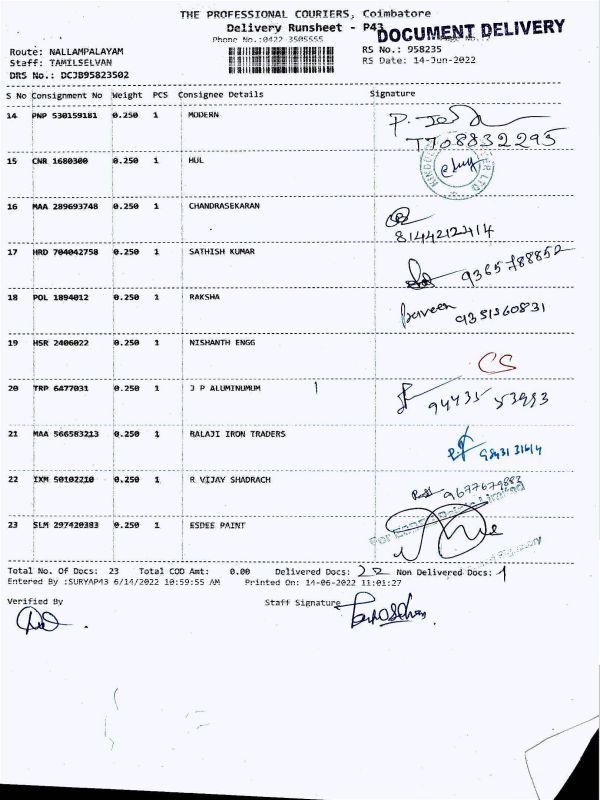 THE PROFESSIONAL COURIERS, Coimbatore
Delivery Runsheet - P43
DOCUMENT DELIVERY
Phone No.:0422-3505555
Route: NALLAMPALAYAM
RS No.: 958235
Staff: TAMILSELVAN
RS Date: 14-Jun-2022
DRS No.: DCJB95823502
S No Consignment No Weight PCS Consignee Details Signature
14 PNP 530159181 0.250 1 MODERN
7708832295
15 CNR 1680300 0.250 1 HUL
16 MAA 289693748 0.250 1 CHANDRASEKARAN
8144212414
17 HRD 704042758 0.250 1 SATHISH KUMAR
9365788852
18 POL 1894012 0.250 1 RAKSHA
praveen 9351560831
19 HSR 2406022 0.250 1 NISHANTH ENGG
CS
20 TRP 6477031 0.250 1 J P ALUMINUMUM
94435 53993
21 MAA 566583213 0.250 1 BALAJI IRON TRADERS
9843131614
22 IXM 50102210 0.250 1 R VIJAY SHADRACH
9677679883
23 SLM 297420383 0.250 1 ESDEE PAINT
Total No. Of Docs: 23 Total COD Amt: 0.00 Delivered Docs: 22 Non Delivered Docs: 1
Entered By :SURYAP43 6/14/2022 10:59:55 AM Printed On: 14-06-2022 11:01:27
Verified By
Staff Signature